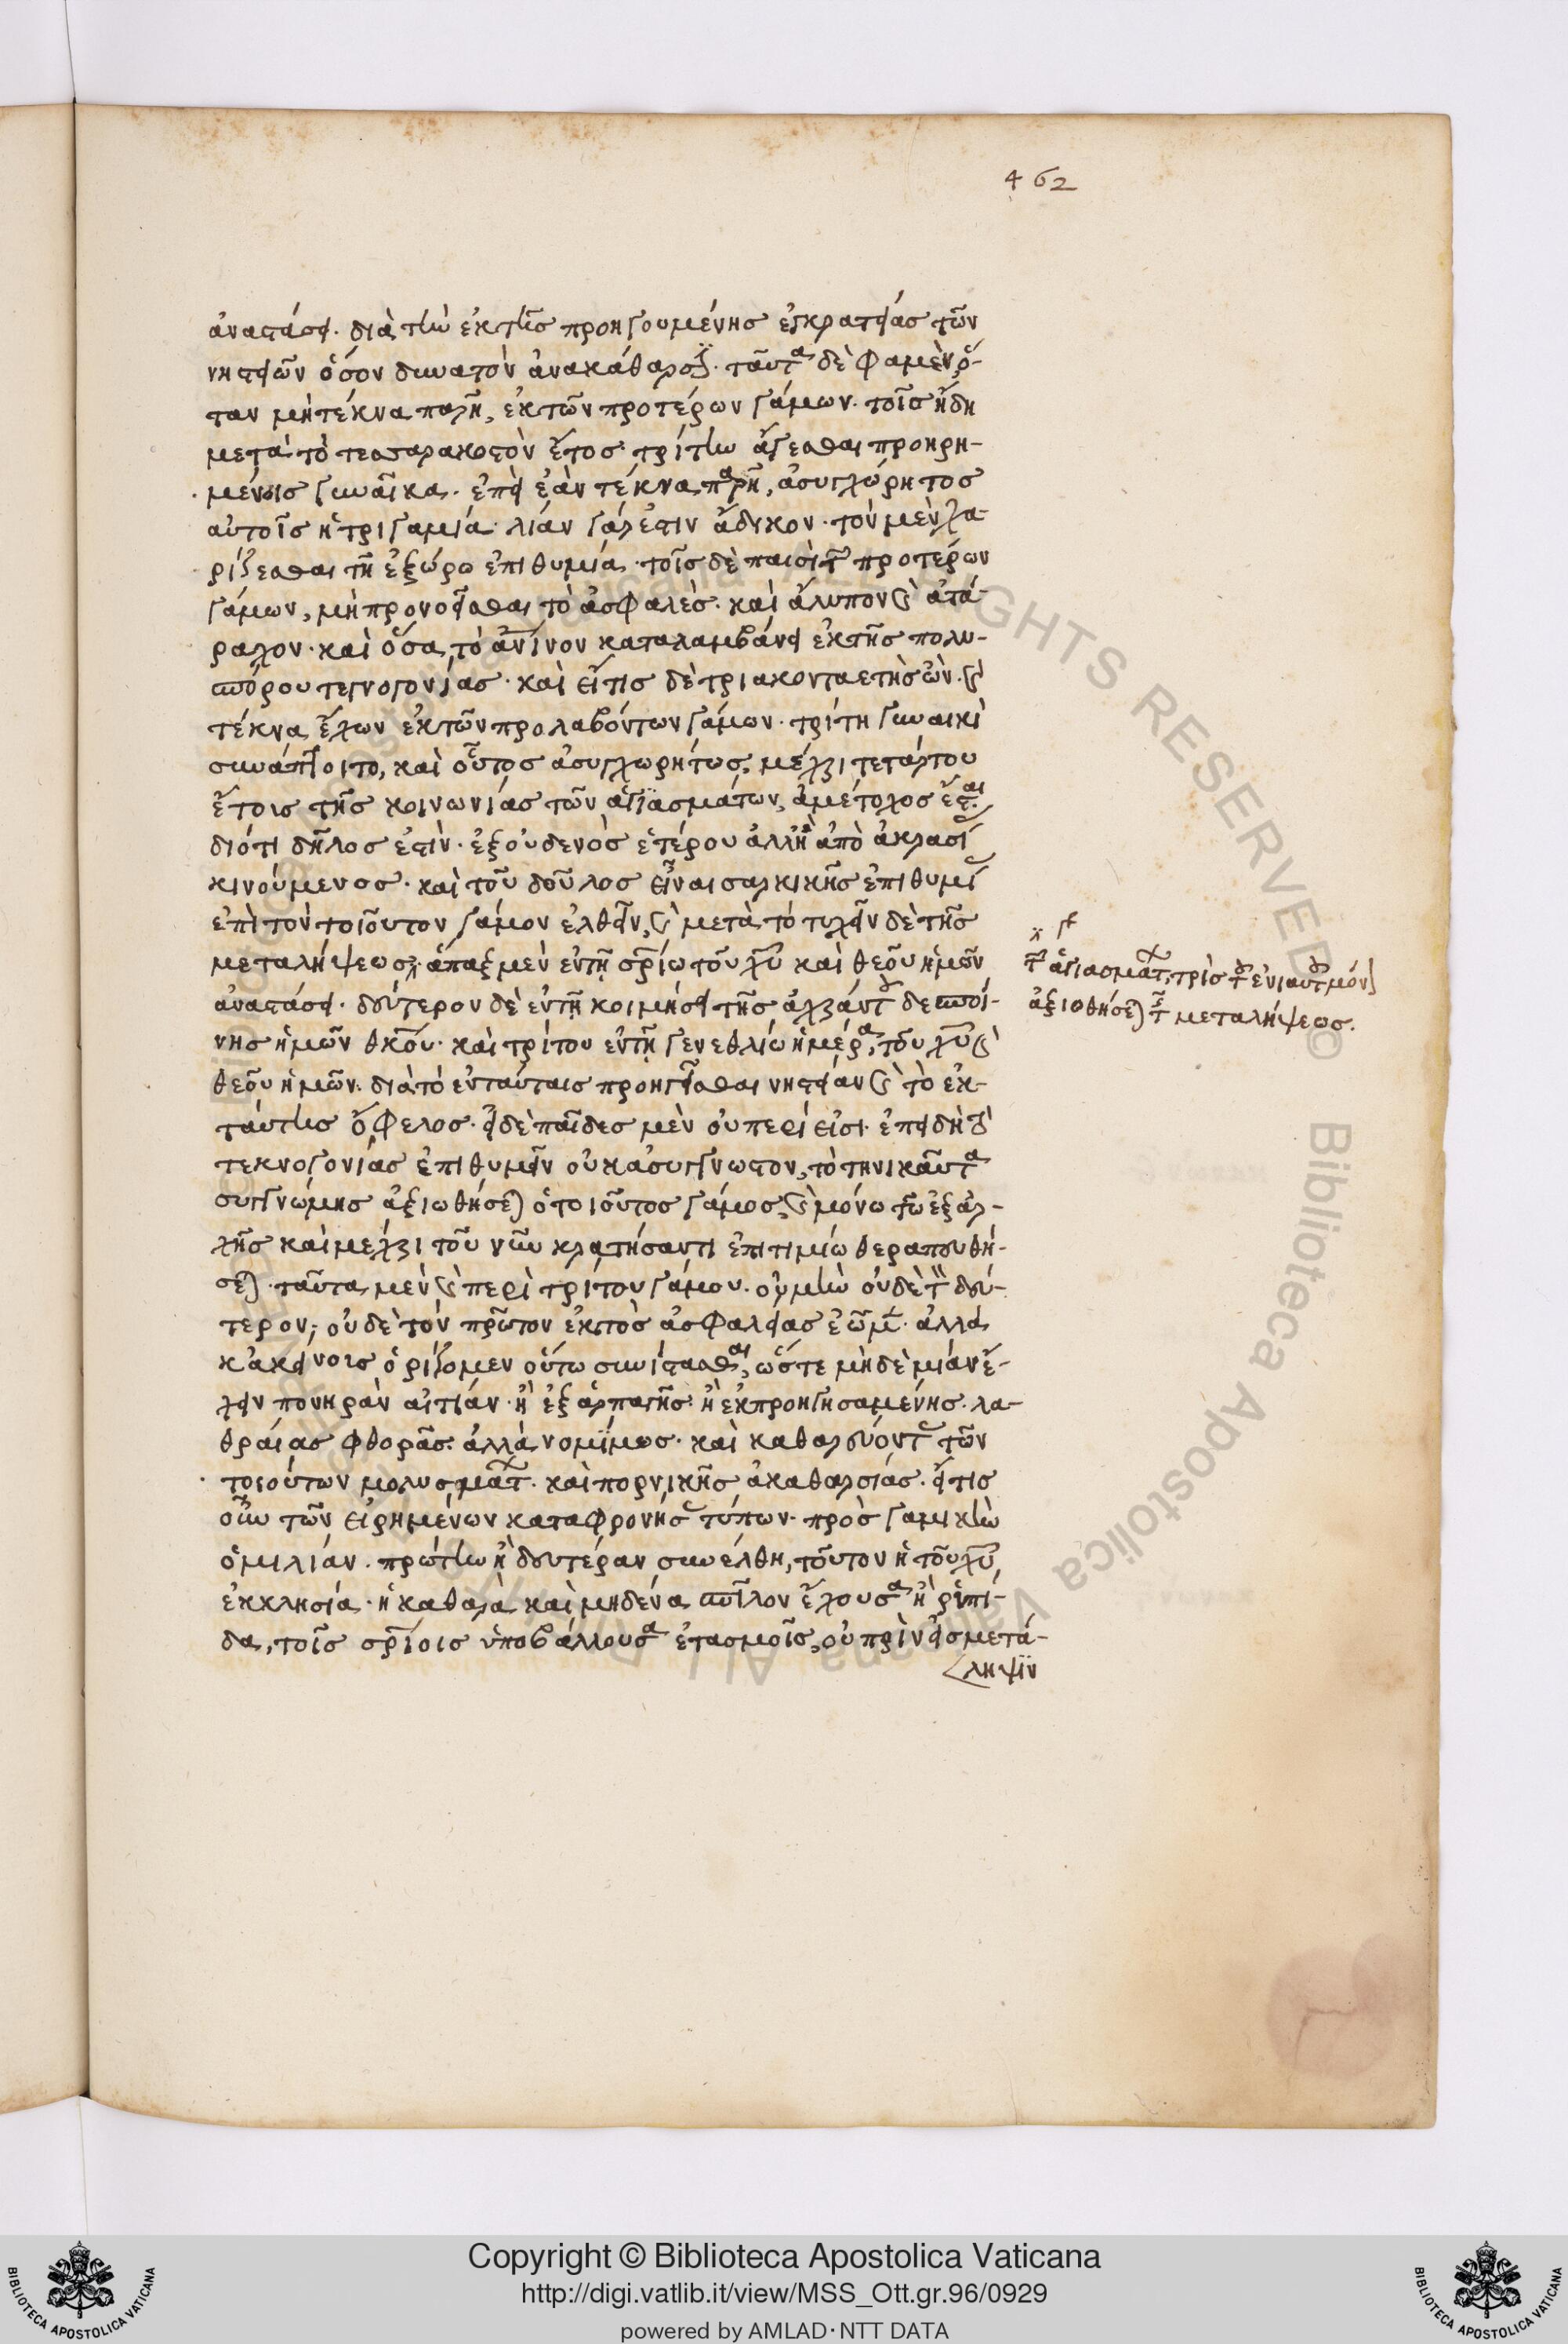 462
ἀναστάσει· διὰ τὴν ἐκ τῆς προηγουμένης ἐγκρατείας τῶν
νηστειῶν ὅσον δυνατὸν ἀνακάθαρσιν· ταῦτα δὲ φαμὲν, ὅ-
ταν μὴ τέκνα παρῇ, ἐκ τῶν προτέρων γάμων· τοῖς ἤδη
μετὰ τὸ τεσσαρακοστὸν ἔτος τρίτην ἄγεσθαι προηρη-
μένοις γυναῖκα· ἐπεὶ ἐὰν τέκνα παρῇ, ἀσυγχώρητος
αὐτοῖς ἡ τριγαμία· λίαν γάρ ἐστιν ἄδικον· τὸν μὲν χα-
ρίζεσθαι τῇ ἐξώρω ἐπιθυμία· τοῖς δὲ παισὶ τῶν προτέρων
γάμων, μὴ προνοεῖσθαι τὸ ἀσφαλές· καὶ ἄλυπον καὶ ἀτά-
ραχον· καὶ ὅσα, τὸ ἀνῖνον καταλαμβάνει ἐκ τῆς πολυ-
σπόρου τεκνογονίας· καὶ εἴ τις δὲ τριακονταετὴς ὢν· καὶ
τέκνα ἔχων ἐκ τῶν προλαβόντων γάμων· τρίτη γυναικὶ
συνάπτοιτο, καὶ οὗτος ἀσυγχωρήτως, μέχρι τετάρτου
ἔτοις τῆς κοινωνίας τῶν ἁγιασμάτων, ἀμέτοχος ἔσται,
διότι δῆλος ἐστὶν· ἐξ οὐδενὸς ἑτέρου ἀλλ' ἢ ἀπὸ ἀκρασίας
κινούμενος· καὶ τοῦ δοῦλος εἶναι σαρκικῆς ἐπιθυμίας
ἐπὶ τὸν τοιοῦτον γάμον ἐλθεῖν, καὶ μετὰ τὸ τυχεῖν δὲ τῆς
μεταλήψεως, ἅπαξ μὲν ἐν τῇ σρίω τοῦ χυ καὶ θεοῦ ἡμῶν
ἀναστάσει· δεύτερον δὲ ἐν τῇ κοιμήσει τῆς ἀχράντου δεσποί-
νης ἡμῶν θκου· καὶ τρίτου ἐν τῇ γενεθλίω ἡμέρα, τοῦ χυ καὶ
θεοῦ ἡμῶν· διὰ τὸ ἐν ταύταις προηγεῖσθαι νηστείαν καὶ τὸ ἐκ
ταύτης ὄφελος· εἰ δὲ παῖδες μὲν οὐ περίεισι· ἐπειδὴ τὸ
τεκνογονίας ἐπιθυμεῖν οὐκ ἀσυγγνωστον, τὸ τηνικαῦτα
συγγνώμης ἀξιωθήσεται ὁ τοιοῦτος γάμος, καὶ μόνω τῶ ἐξ ἀρ-
χῆς καὶ μέχρι τοῦ νῦν κρατήσαντι ἐπιτιμίω θεραπευθή-
σεται· ταῦτα μὲν καὶ περὶ τρίτου γάμου· οὐ μὴν οὐδὲ τὸν δεύ-
τερον, οὐδὲ τὸν πρῶτον ἐκτὸς ἀσφαλείας ἐῶμεν· ἀλλὰ
κἀκείνοις ὁρίζομεν οὕτω συνίστασθαι, ὥστε μὴ δὲ μίαν ἔ-
χειν πονηρὰν αἰτίαν· ἢ ἐξ ἁρπαγῆς ἢ ἐκ προηγησαμένης λα-
θραίας φθορᾶς· ἀλλὰ νομίμως· καὶ καθαρεύοντας τῶν
τοιούτων μολυσμάτων· καὶ πορνικῆς ἀκαθαρσίας· εἴ τις
οὖν τῶν εἰρημένων καταφρονήσας τύπων· πρὸς γαμικὴν
ὁμιλίαν· πρώτην ἢ δευτέραν συνέλθη, τοῦτον ἡ τοῦ χυ
ἐκκλησία· ἡ καθαρὰ καὶ μηδένα σπῖλον ἔχουσα ἢ ῥιπί-
δα, τοῖς σρίοις ὑποβάλλουσα ἐτασμοῖς, οὐ πρὶν εἰς μετά-
ληψιν
τῶν ἁγιασμάτων, τρὶς τοῦ ἐνιαυτοῦ μόνον
ἀξιωθήσεται τῆς μεταλήψεως.
Copyright © Biblioteca Apostolica Vaticana
http://digi.vatlib.it/view/MSS_Ott.gr.96/0929
powered by AMLAD·NTT DATA